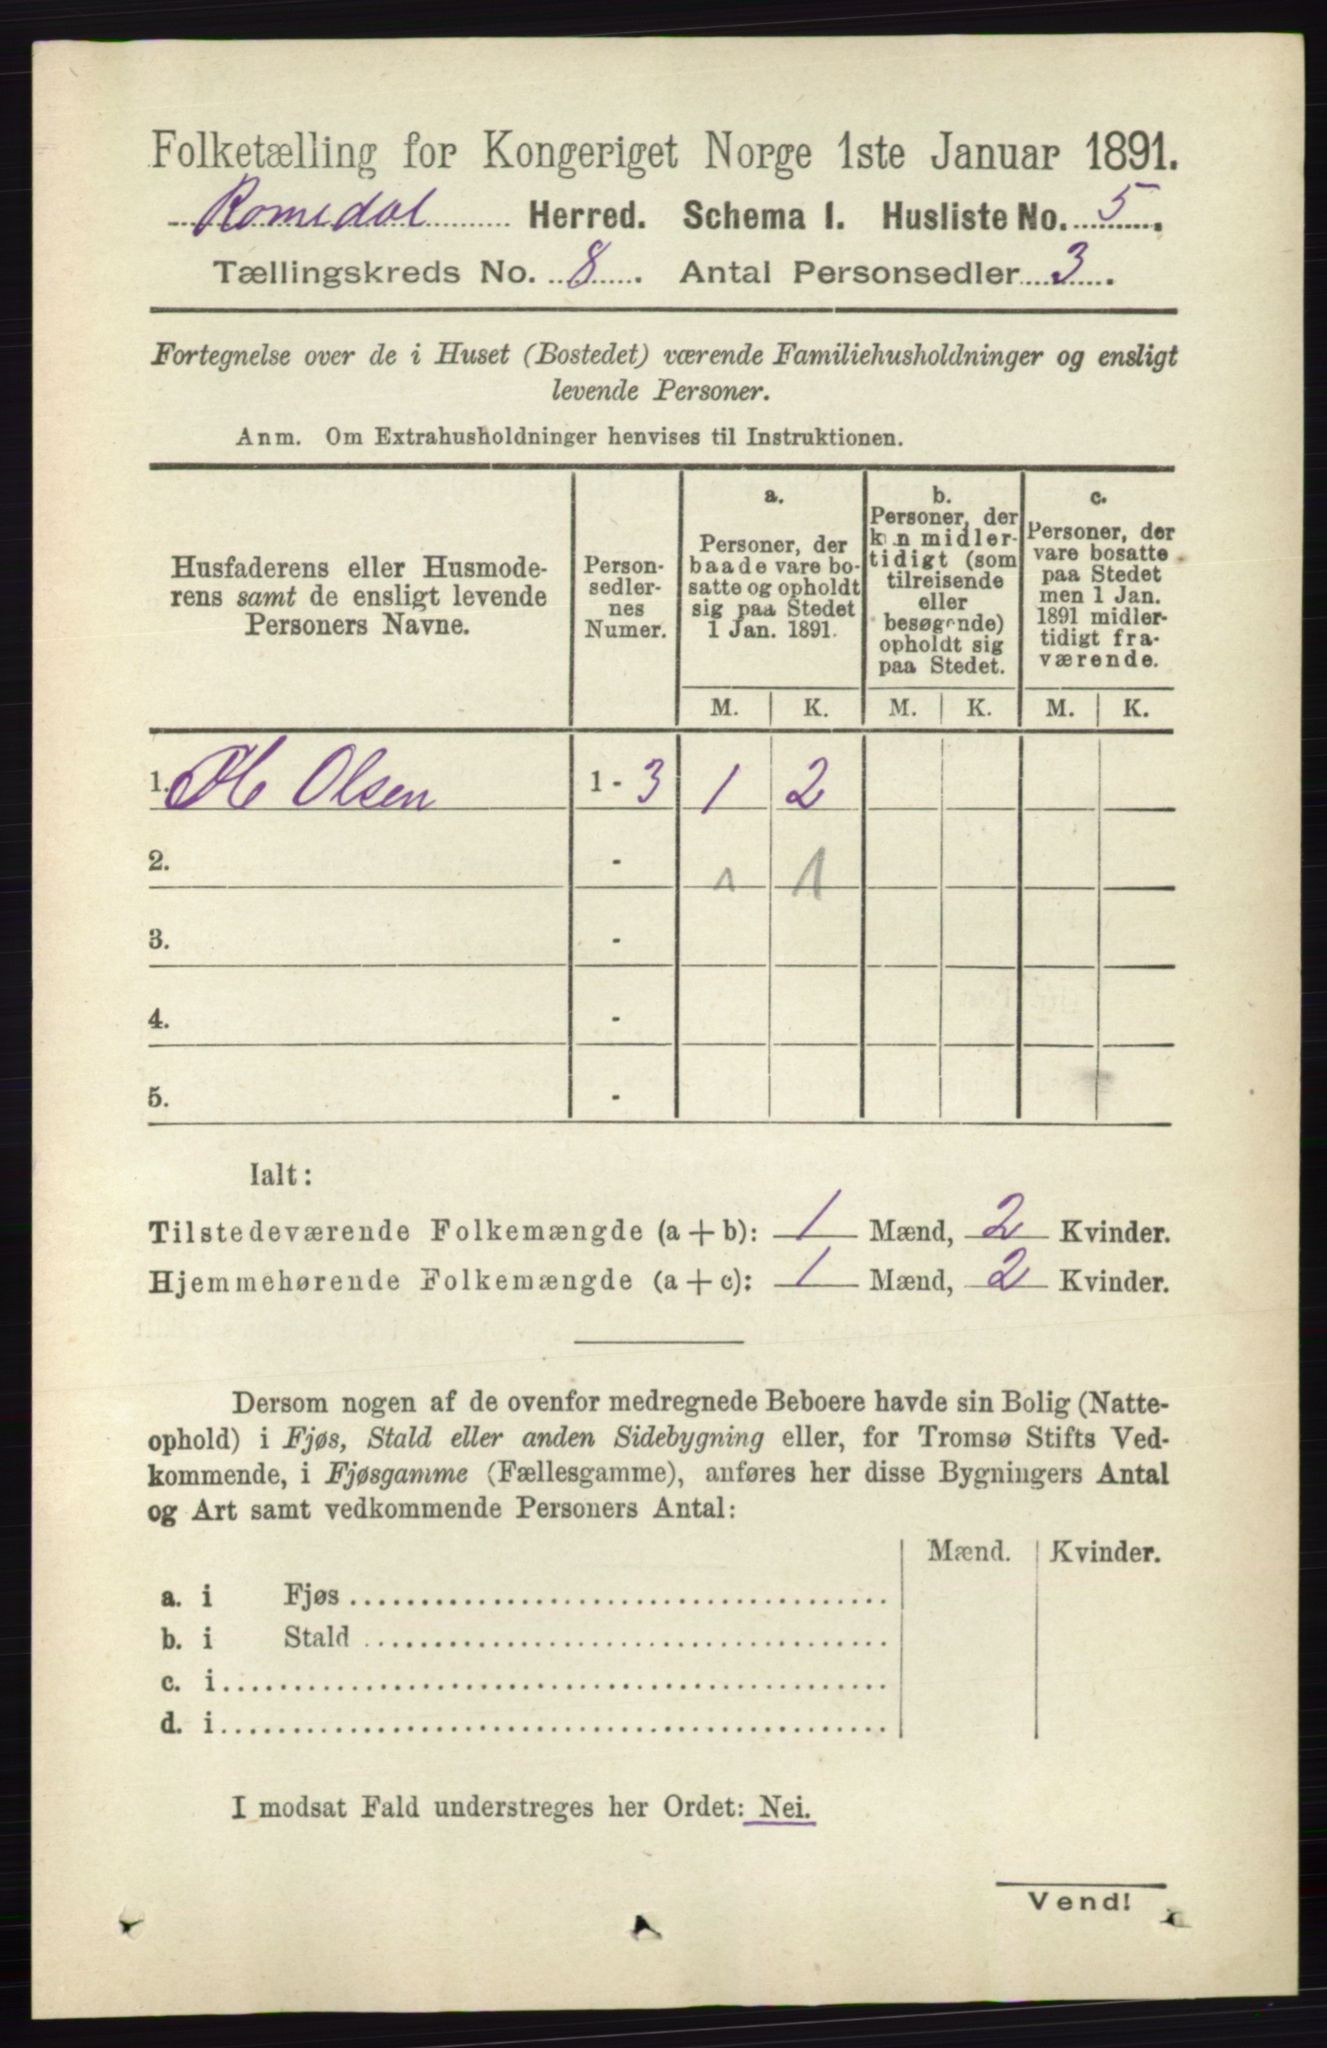 Folketælling for Kongeriget Norge 1ste Januar 1891.
Romedal Herred. Schema 1. Husliste No. 5.
Tællingskreds No. 8. Antal Personsedler 3.
Fortegnelse over de i Huset (Bostedet) værende Familiehusholdninger og ensligt
levende Personer.
Anm. Om Extrahusholdninger henvises til Instruktionen.
Husfaderens eller Husmode-
rens samt de ensligt levende
Personers Navne.
Person-
sedler-
nes
Numer.
a.
Personer, der
baade vare bo-
satte og opholdt
sig paa Stedet
1 Jan. 1891.
b.
Personer, der
kun midler-
tidigt (som
tilreisende
eller
besøgende)
opholdt sig
paa Stedet.
c.
Personer, der
vare bosatte
paa Stedet
men 1 Jan.
1891 midler-
tidigt fra-
værende.
M. K. M. K. M. K.
1. H Olsen 1 - 3 1 2
2. - 1 1
3. -
4. -
5. -
Ialt:
Tilstedeværende Folkemængde (a + b): 1 Mænd, 2 Kvinder.
Hjemmehørende Folkemængde (a + c): 1 Mænd, 2 Kvinder.
Dersom nogen af de ovenfor medregnede Beboere havde sin Bolig (Natte-
ophold) i Fjøs, Stald eller anden Sidebygning eller, for Tromsø Stifts Ved-
kommende, i Fjøsgamme (Fællesgamme), anføres her disse Bygningers Antal
og Art samt vedkommende Personers Antal:
Mænd. Kvinder.
a. i Fjøs
b. i Stald
c. i
d. i
I modsat Fald understreges her Ordet: Nei.
Vend!